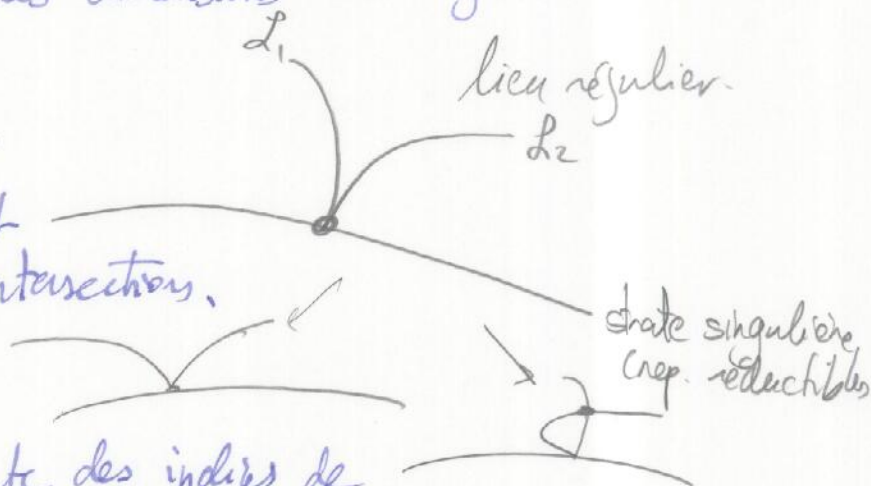 dimensions
L₁
lieu régulier.
L₂
intersections.
strate singulière
(rep. réductibles
des indices de